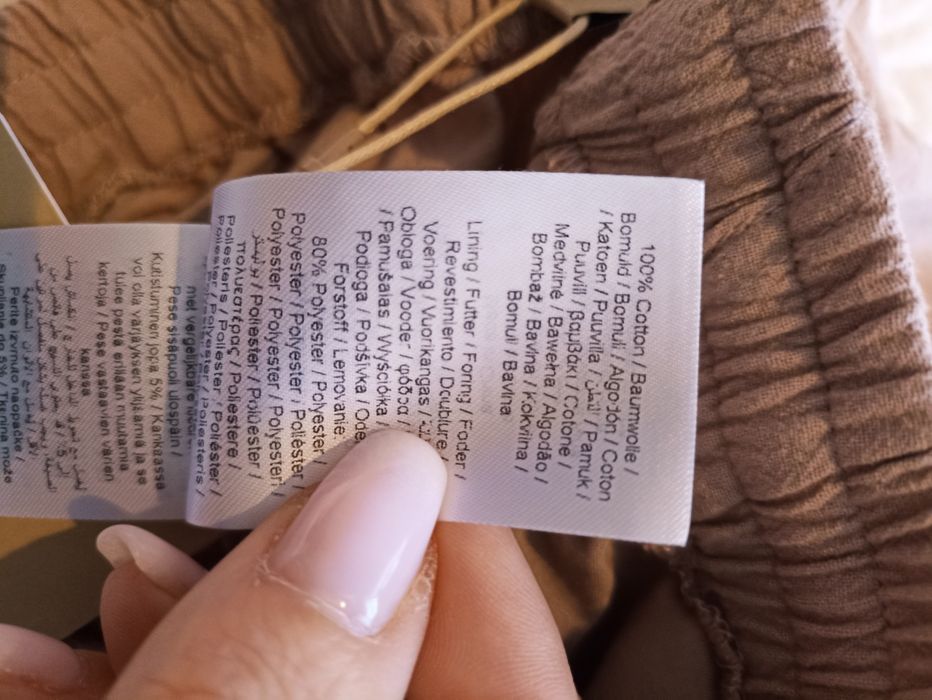 100% Cotton / Baumwolle /
Bomuld / Bomuli / Algodon / Coton
/ Katoen / Puuvilla / القطن / Pamuk /
Puuvill / βαμβάκι / Cotone /
Medvilnė / Bawełna / Algodão /
Bombaž / Bavlna / Kokvilna /
Bomuli / Bavlna
Lining / Futter / Foring / Foder /
Revestimiento / Doublure /
Voering / Vuorikangas /
Obloga / Vooder / φόδρα /
/ Pamušalas / Wyściółka /
Podloga / Podšívka /
Forstoff / Lemovanie:
80% Polyester / Polyester /
Polyester / Polyester / Poliéster /
Polyester / Polyester / Polyesteri /
بوليستر / Poliester / Polüester /
πολυεστέρας / Poliestere /
Poliesteris / Poliester / Poliéster /
Poliester / Polyester / Poliesteris /
met vergelijkbare
Pese sisäpuoli ulospäin /
Kutistuminen jopa 5% / Kankaassa
voi olla värjäyksen ylijäämiä ja se
tulee pestä erillään muutamia
kertoja / Pese vastaavien värien
kanssa
Perite izvrnuto naopačke /
Skupljanje do 5% / Tkanina može